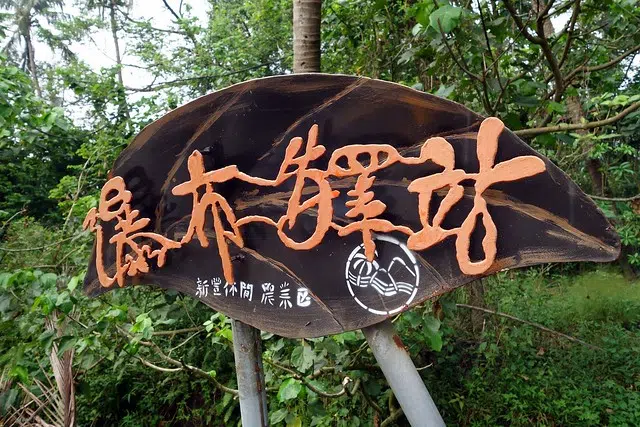 瀑布驛站
新豐休閒農業区